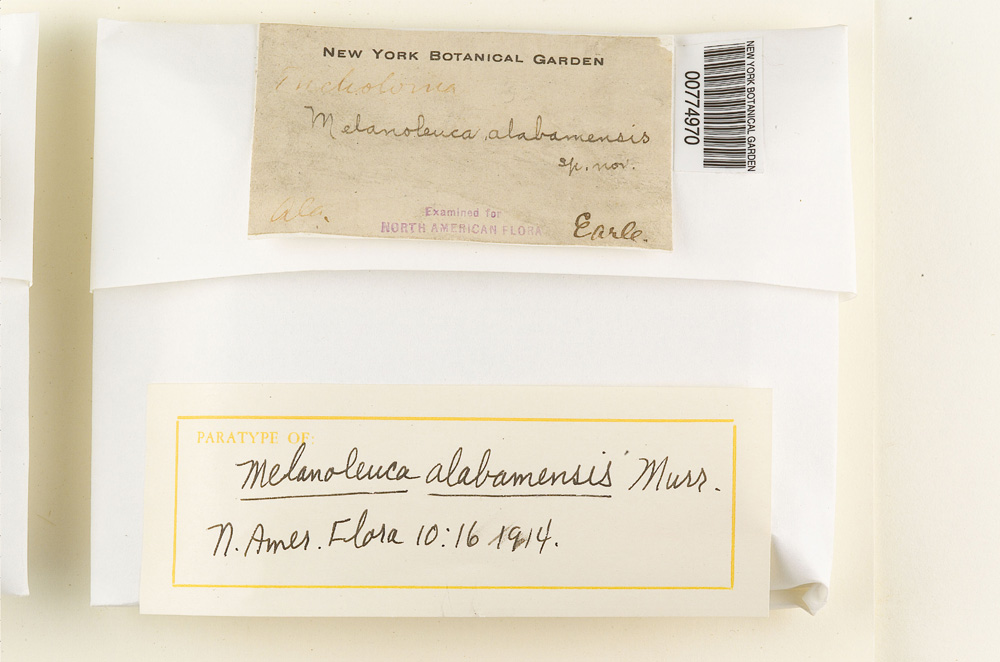 NEW YORK BOTANICAL GARDEN
Tricholoma
Melanoleuca alabamensis
sp. nov.
Ala.
Examined for
NORTH AMERICAN FLORA
Earle.
NEW YORK BOTANICAL GARDEN
00774970
PARATYPE OF:
Melanoleuca alabamensis Murr.
N. Amer. Flora 10:16 1914.